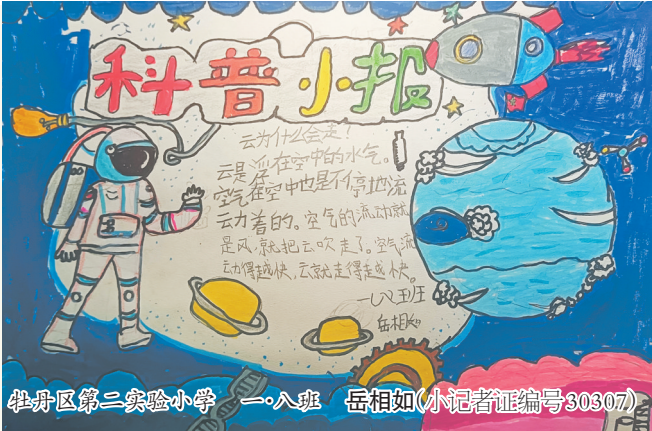 科普小报
云为什么会走？
云是浮在空中的水气。
空气在空中也是不停地流
云力着的。空气的流动就
是风，就把云吹走了。空气流
动得越快，云就走得越快。
一八班
岳相如
牡丹区第二实验小学 一·八班 岳相如(小记者证编号30307)